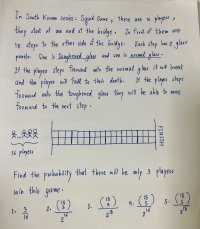 In South Korean series: Squid Game, there are 16 players,
they start at one end of the bridge. In front of them are
18 steps to the other side of the bridge. Each step has 2 glass
panels. One is toughened glass and one is normal glass.
If the players step forward onto the normal glass it will break
and the players will fall to their death. If the players steps
forward onto the toughened glass they will be able to move
forward to the next step.
FINISH
16 players
Find the probability that there will be only 3 players
win this game.
1. 3/16
2. 3/2^18
3. (16 3)/2^18
4. (18 5)/2^18
5. (18 3)/2^18